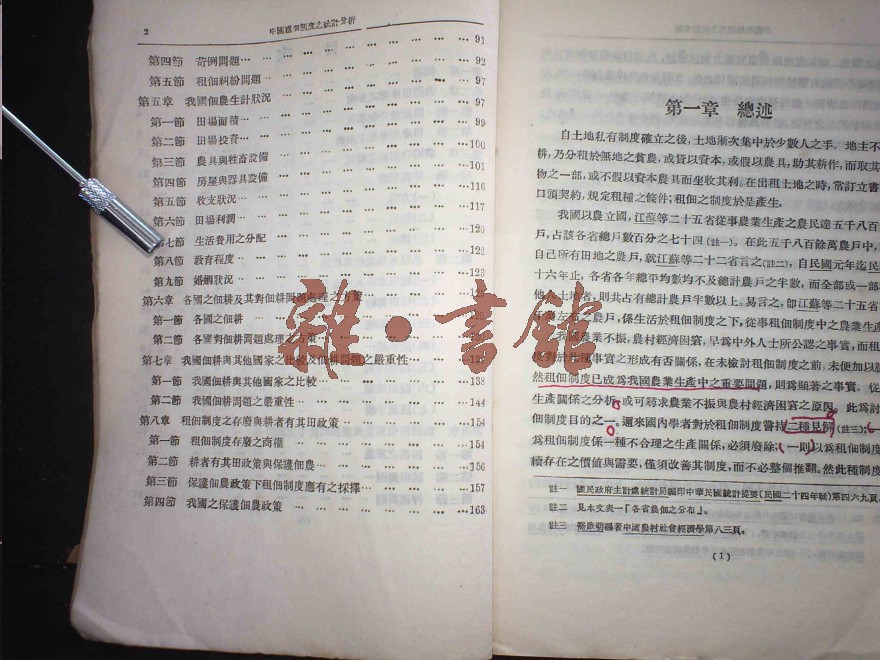 2
中國租佃制度之統計分析
第四節 苛例問題… 91
第五節 租佃糾紛問題… 92
第五章 我國佃農生計狀況 97
第一節 田場面積… 97
第二節 田場投資… 99
第三節 農具與牲畜設備 100
第四節 房屋與器具設備 101
第五節 收支狀況… 116
第六節 田場利潤… 117
七節 生活費用之分配 120
第八節 教育程度 122
第九節 婚姻狀況
第六章 各國之佃耕及其對佃耕問題處理之方策
第一節 各國之佃耕
第二節 各國對佃耕問題處理之方策
第七章 我國佃耕與其他國家之比較及佃耕問題之嚴重性…
第一節 我國佃耕與其他國家之比較… 138
第二節 我國佃耕問題之嚴重性… 144
第八章 租佃制度之存廢與耕者有其田政策 154
第一節 租佃制度存廢之商榷 154
第二節 耕者有其田政策與保護佃農… 156
第三節 保護佃農政策下租佃制度應有之採擇… 157
第四節 我國之保護佃農政策 163
第一章 總述
自土地私有制度確立之後,土地漸次集中於少數人之手。地主不
耕,乃分租於無地之貧農,或貸以資本,或假以農具,助其耕作,而取其
物之一部,或不假以資本農具而坐收其利。在出租土地之時,常訂立書
口頭契約,規定租種之條件;租佃之制度於是產生。
我國以農立國,江蘇等二十五省從事農業生產之農民達五千八百
戶,占該各省總戶數百分之七十四(註一)。在此五千八百餘萬農戶中,
自己所有田地之農戶,就江蘇等二十二省言之(註二),自民國元年迄民
十六年止,各省各年總平均數均不及總計農戶之半數,而全部或一部
他人土地者,則共占有總計農戶半數以上。易言之,卽江蘇等二十五省
萬左右之農戶,係生活於租佃制度之下,從事租佃制度中之農業生產
我國農業不振,農村經濟困窘,早爲中外人士所公認之事實,而租
度對於此種事實之形成有否關係,在未檢討租佃制度之前,未便加以
然租佃制度已成爲我國農業生產中之重要問題,則爲顯著之事實。從
生產關係之分析,或可尋求農業不振與農村經濟困窘之原因。此爲討
佃制度目的之一。邇來國內學者對於租佃制度嘗持二種見解(註三):一
爲租佃制度係一種不合理之生產關係,必須廢除;一則以爲租佃制度
續存在之價值與需要,僅須改善其制度,而不必整個推翻。然此種制度
註一 國民政府主計處統計局編印中華民國統計提要(民國二十四年輯)第四六九頁
註二 見本文表一『各省農佃之分布』。
註三 喬啟明編著中國農村社會經濟學第八三頁。
(1)
雜·書館